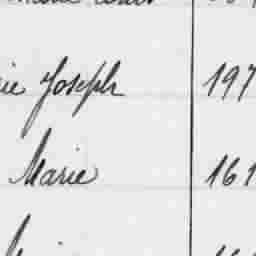 ie Joseph 197
Marie 161